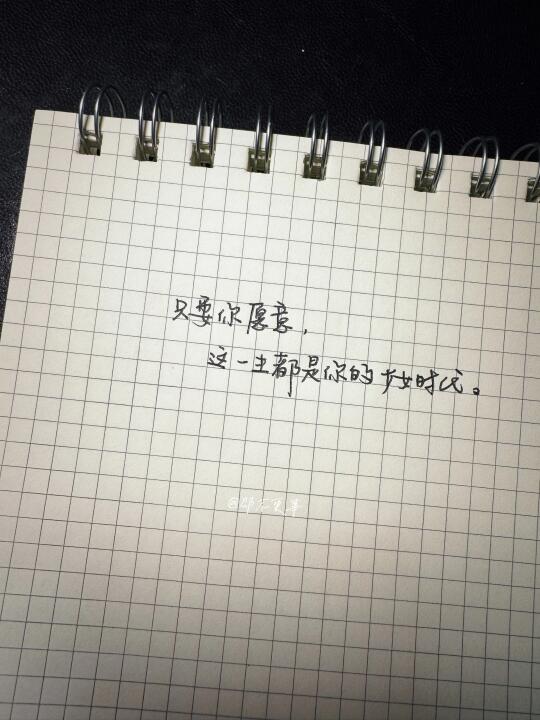 只要你愿意,
这一生都是你的少女时代。